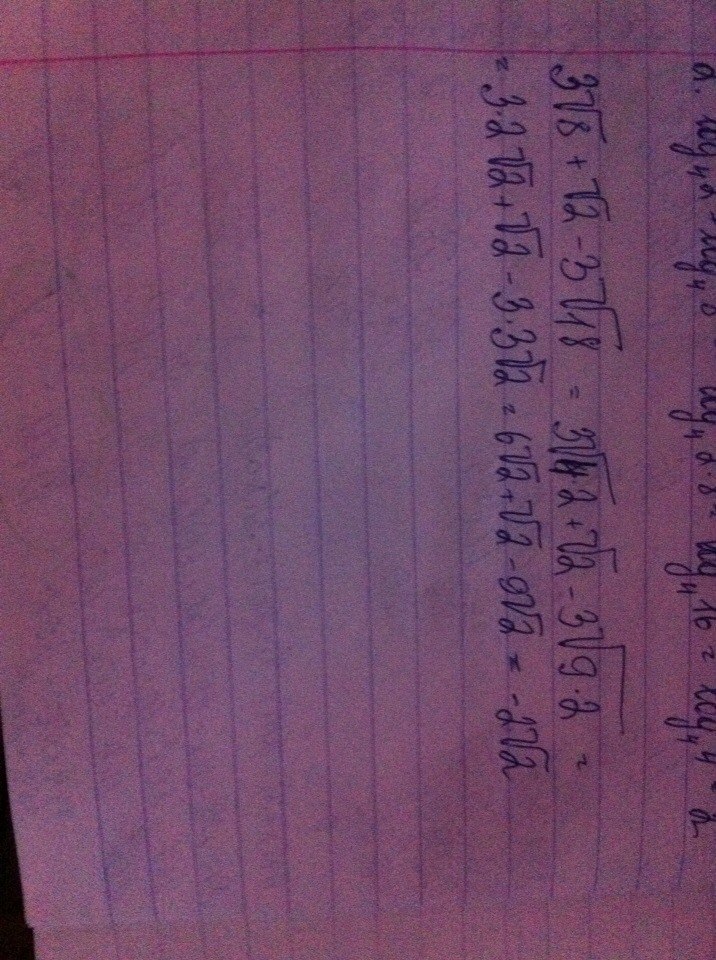 2. log₄2 + log₄8 = log₄2·8 = log₄16 = log₄4² = 2
3√8 + √2 - 3√18 = 3√4·2 + √2 - 3√9·2 =
= 3·2√2 + √2 - 3·3√2 = 6√2 + √2 - 9√2 = -2√2